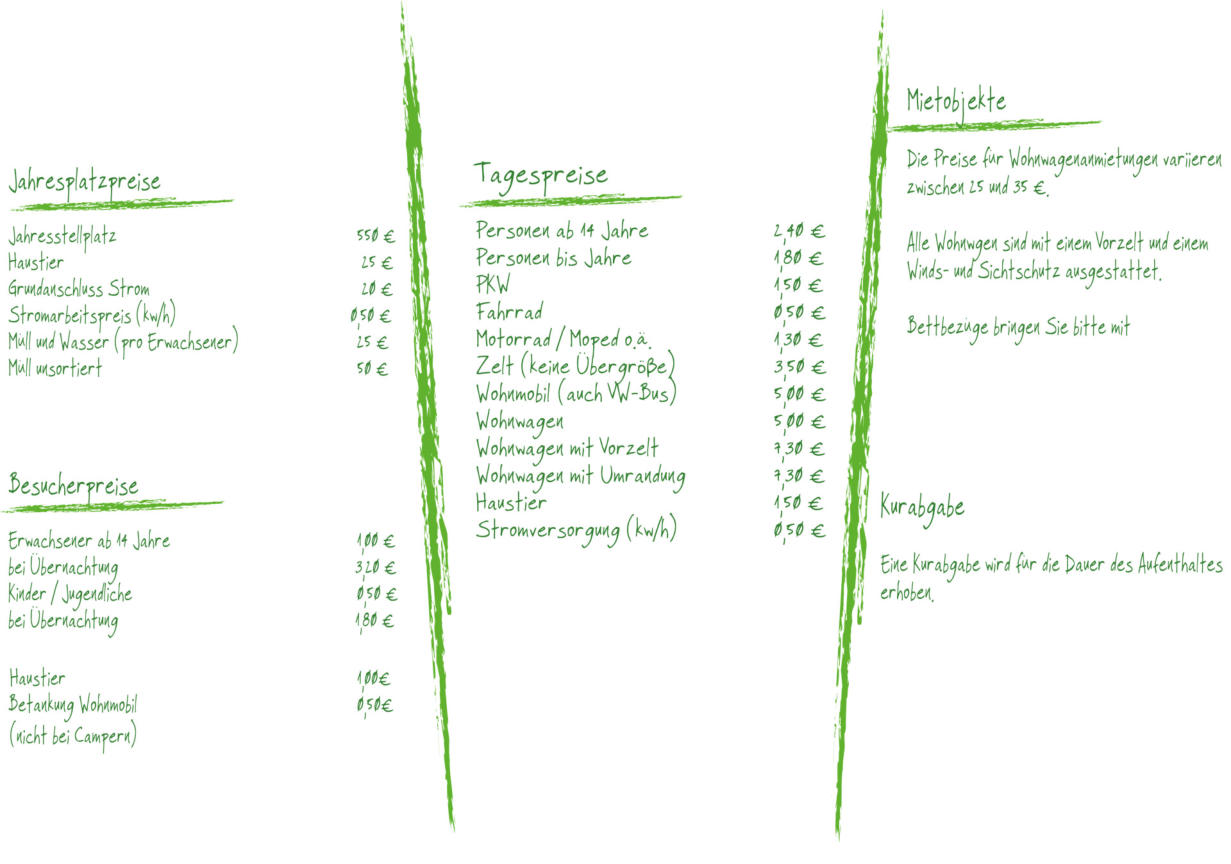 Jahresplatzpreise
Jahresstellplatz 550 €
Haustier 25 €
Grundanschluss Strom 20 €
Stromarbeitspreis (kw/h) 0,50 €
Müll und Wasser (pro Erwachsener) 25 €
Müll unsortiert 50 €
Besucherpreise
Erwachsener ab 14 Jahre 1,00 €
bei Übernachtung 3,20 €
Kinder / Jugendliche 0,50 €
bei Übernachtung 1,80 €
Haustier 1,00€
Betankung Wohnmobil 0,50€
(nicht bei Campern)
Tagespreise
Personen ab 14 Jahre 2,40 €
Personen bis Jahre 1,80 €
PKW 1,50 €
Fahrrad 0,50 €
Motorrad / Moped o.ä. 1,30 €
Zelt (keine Übergröße) 3,50 €
Wohnmobil (auch VW-Bus) 5,00 €
Wohnwagen 5,00 €
Wohnwagen mit Vorzelt 7,30 €
Wohnwagen mit Umrandung 7,30 €
Haustier 1,50 €
Stromversorgung (kw/h) 0,50 €
Mietobjekte
Die Preise für Wohnwagenanmietungen variieren
zwischen 25 und 35 €.
Alle Wohnwgen sind mit einem Vorzelt und einem
Winds- und Sichtschutz ausgestattet.
Bettbezüge bringen Sie bitte mit
Kurabgabe
Eine Kurabgabe wird für die Dauer des Aufenthaltes
erhoben.